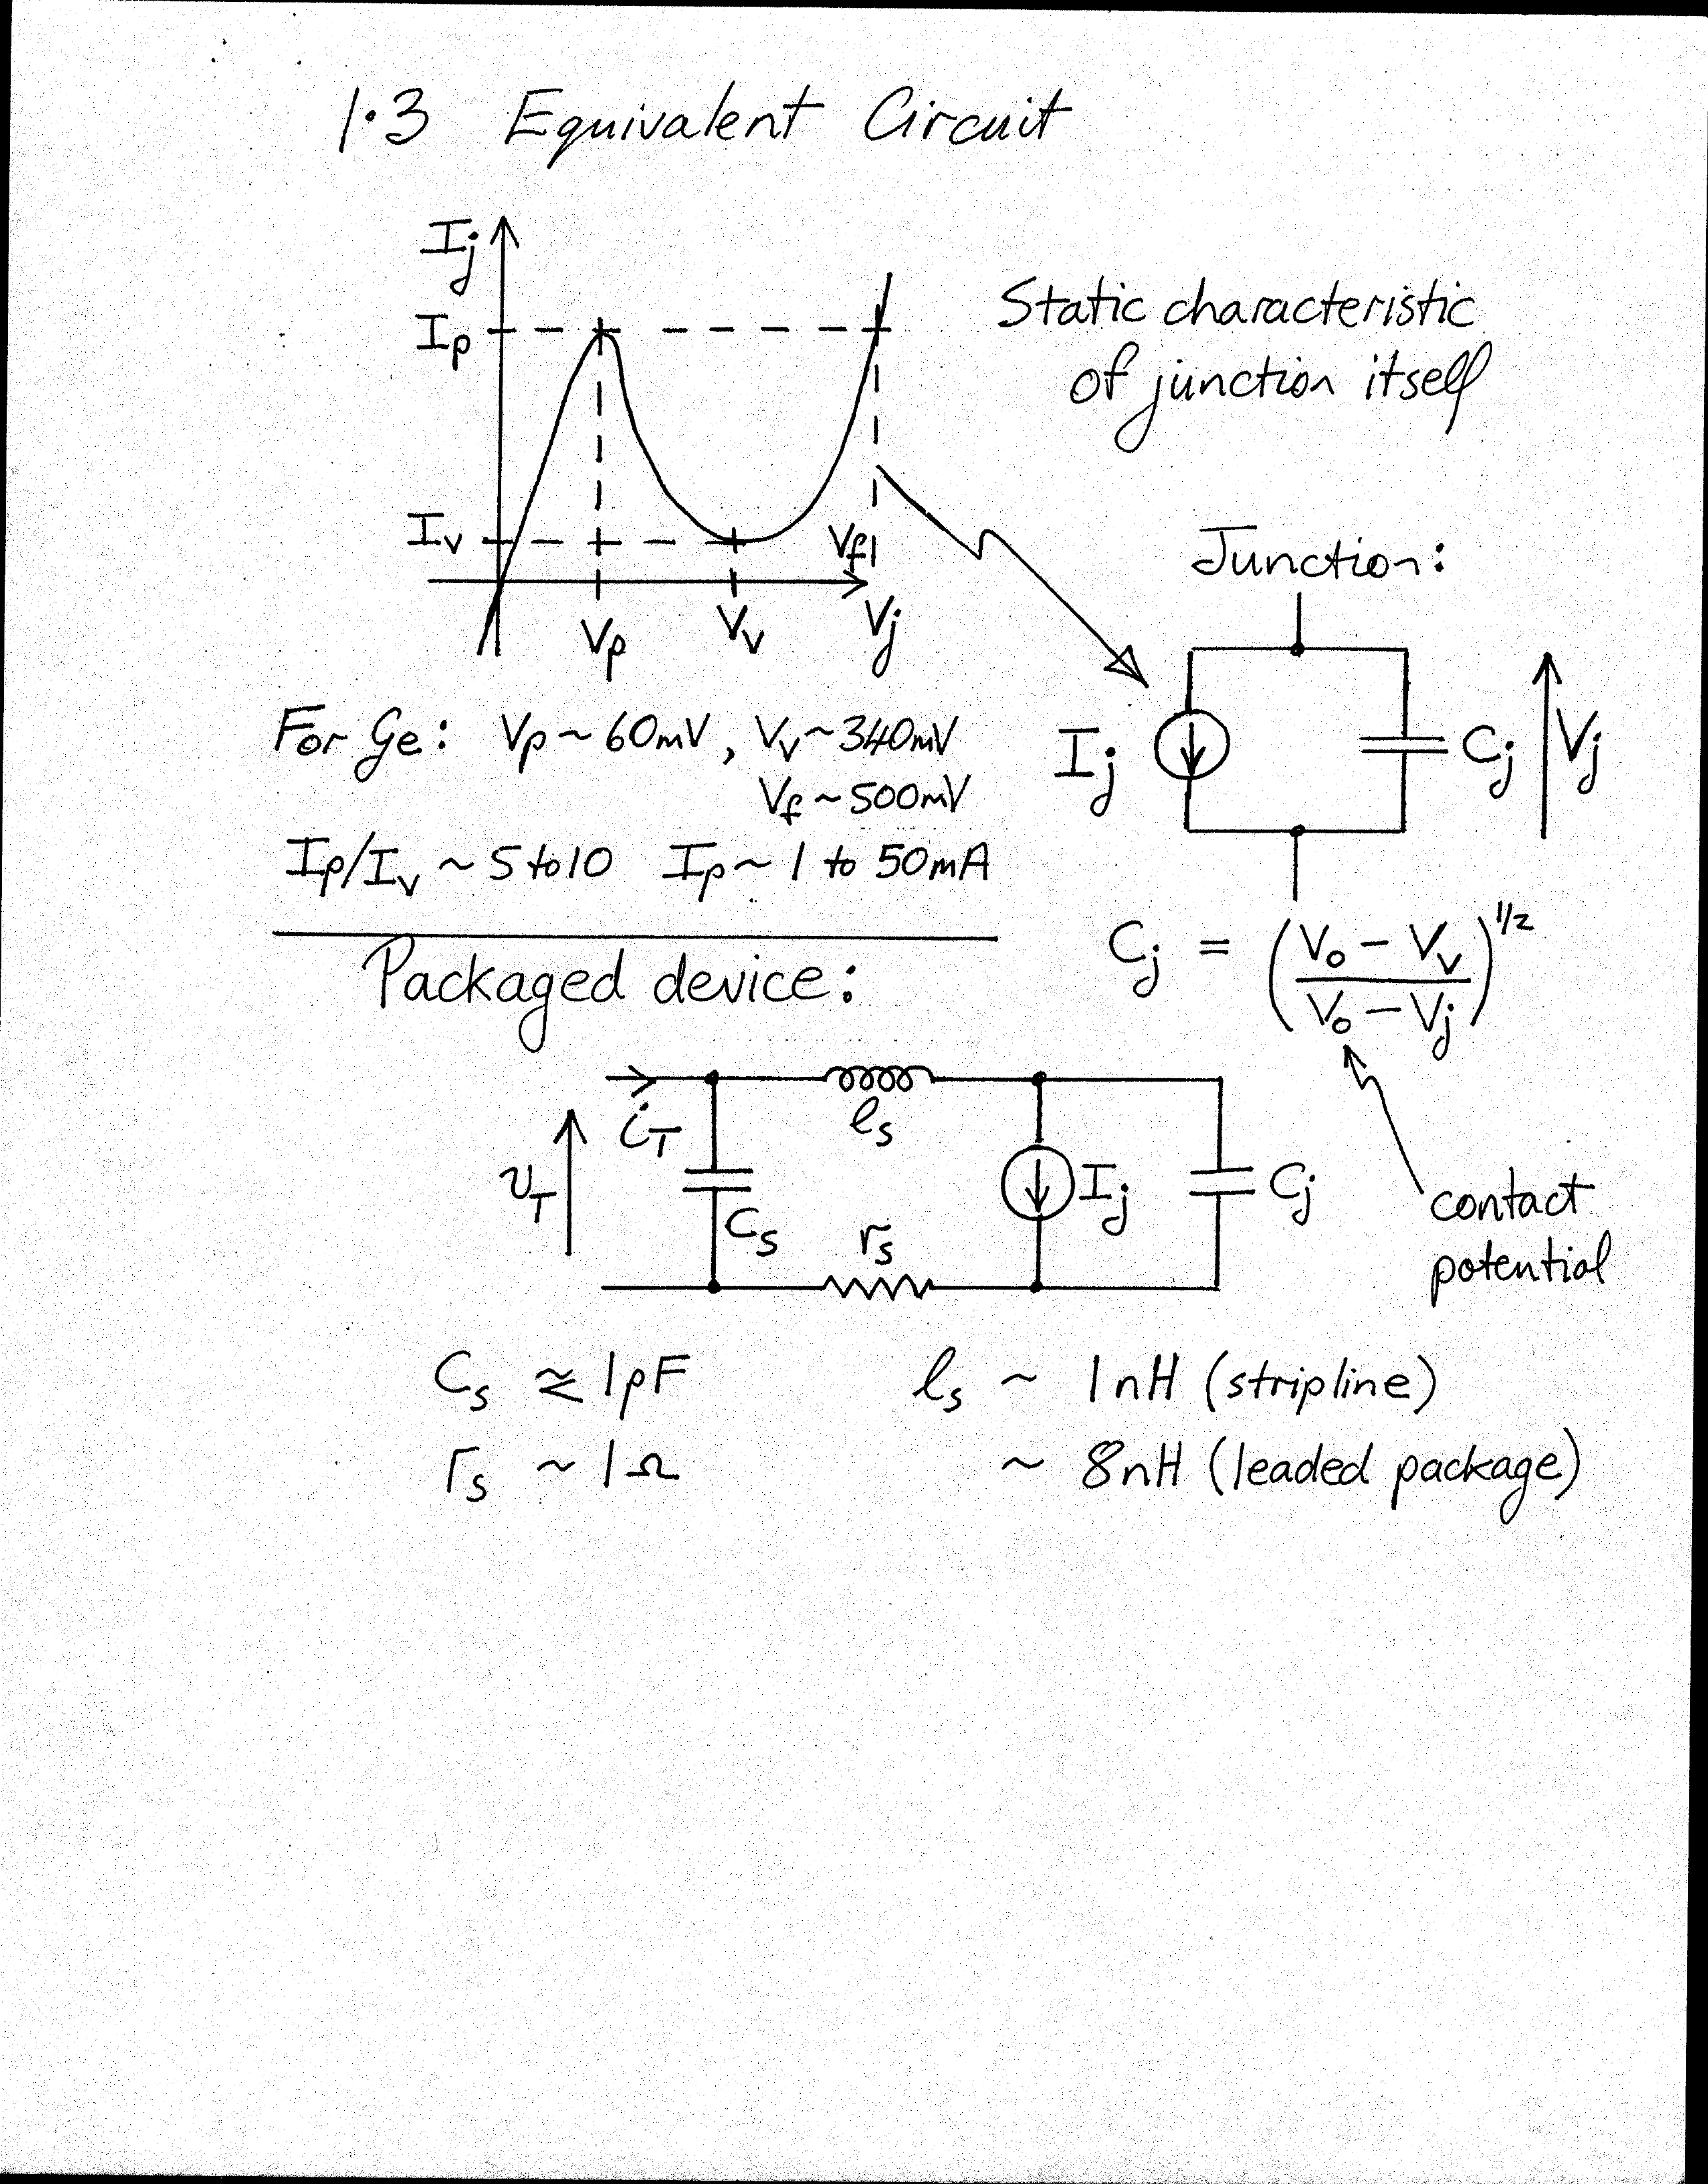 1.3 Equivalent Circuit
Ij
Ip
Iv
Vp
Vv
Vf
Vj
Static characteristic
of junction itself
Junction:
Ij
Cj
Vj
For Ge: Vp ~ 60mV, Vv ~ 340mV
Vf ~ 500mV
Ip/Iv ~ 5 to 10 Ip ~ 1 to 50mA
Cj = ((Vo - Vv)/(Vo - Vj))^1/2
contact
potential
Packaged device:
iT
vT
Cs
ls
rs
Ij
Cj
Cs ⪝ 1pF
ls ~ 1nH (stripline)
rs ~ 1Ω
~ 8nH (leaded package)